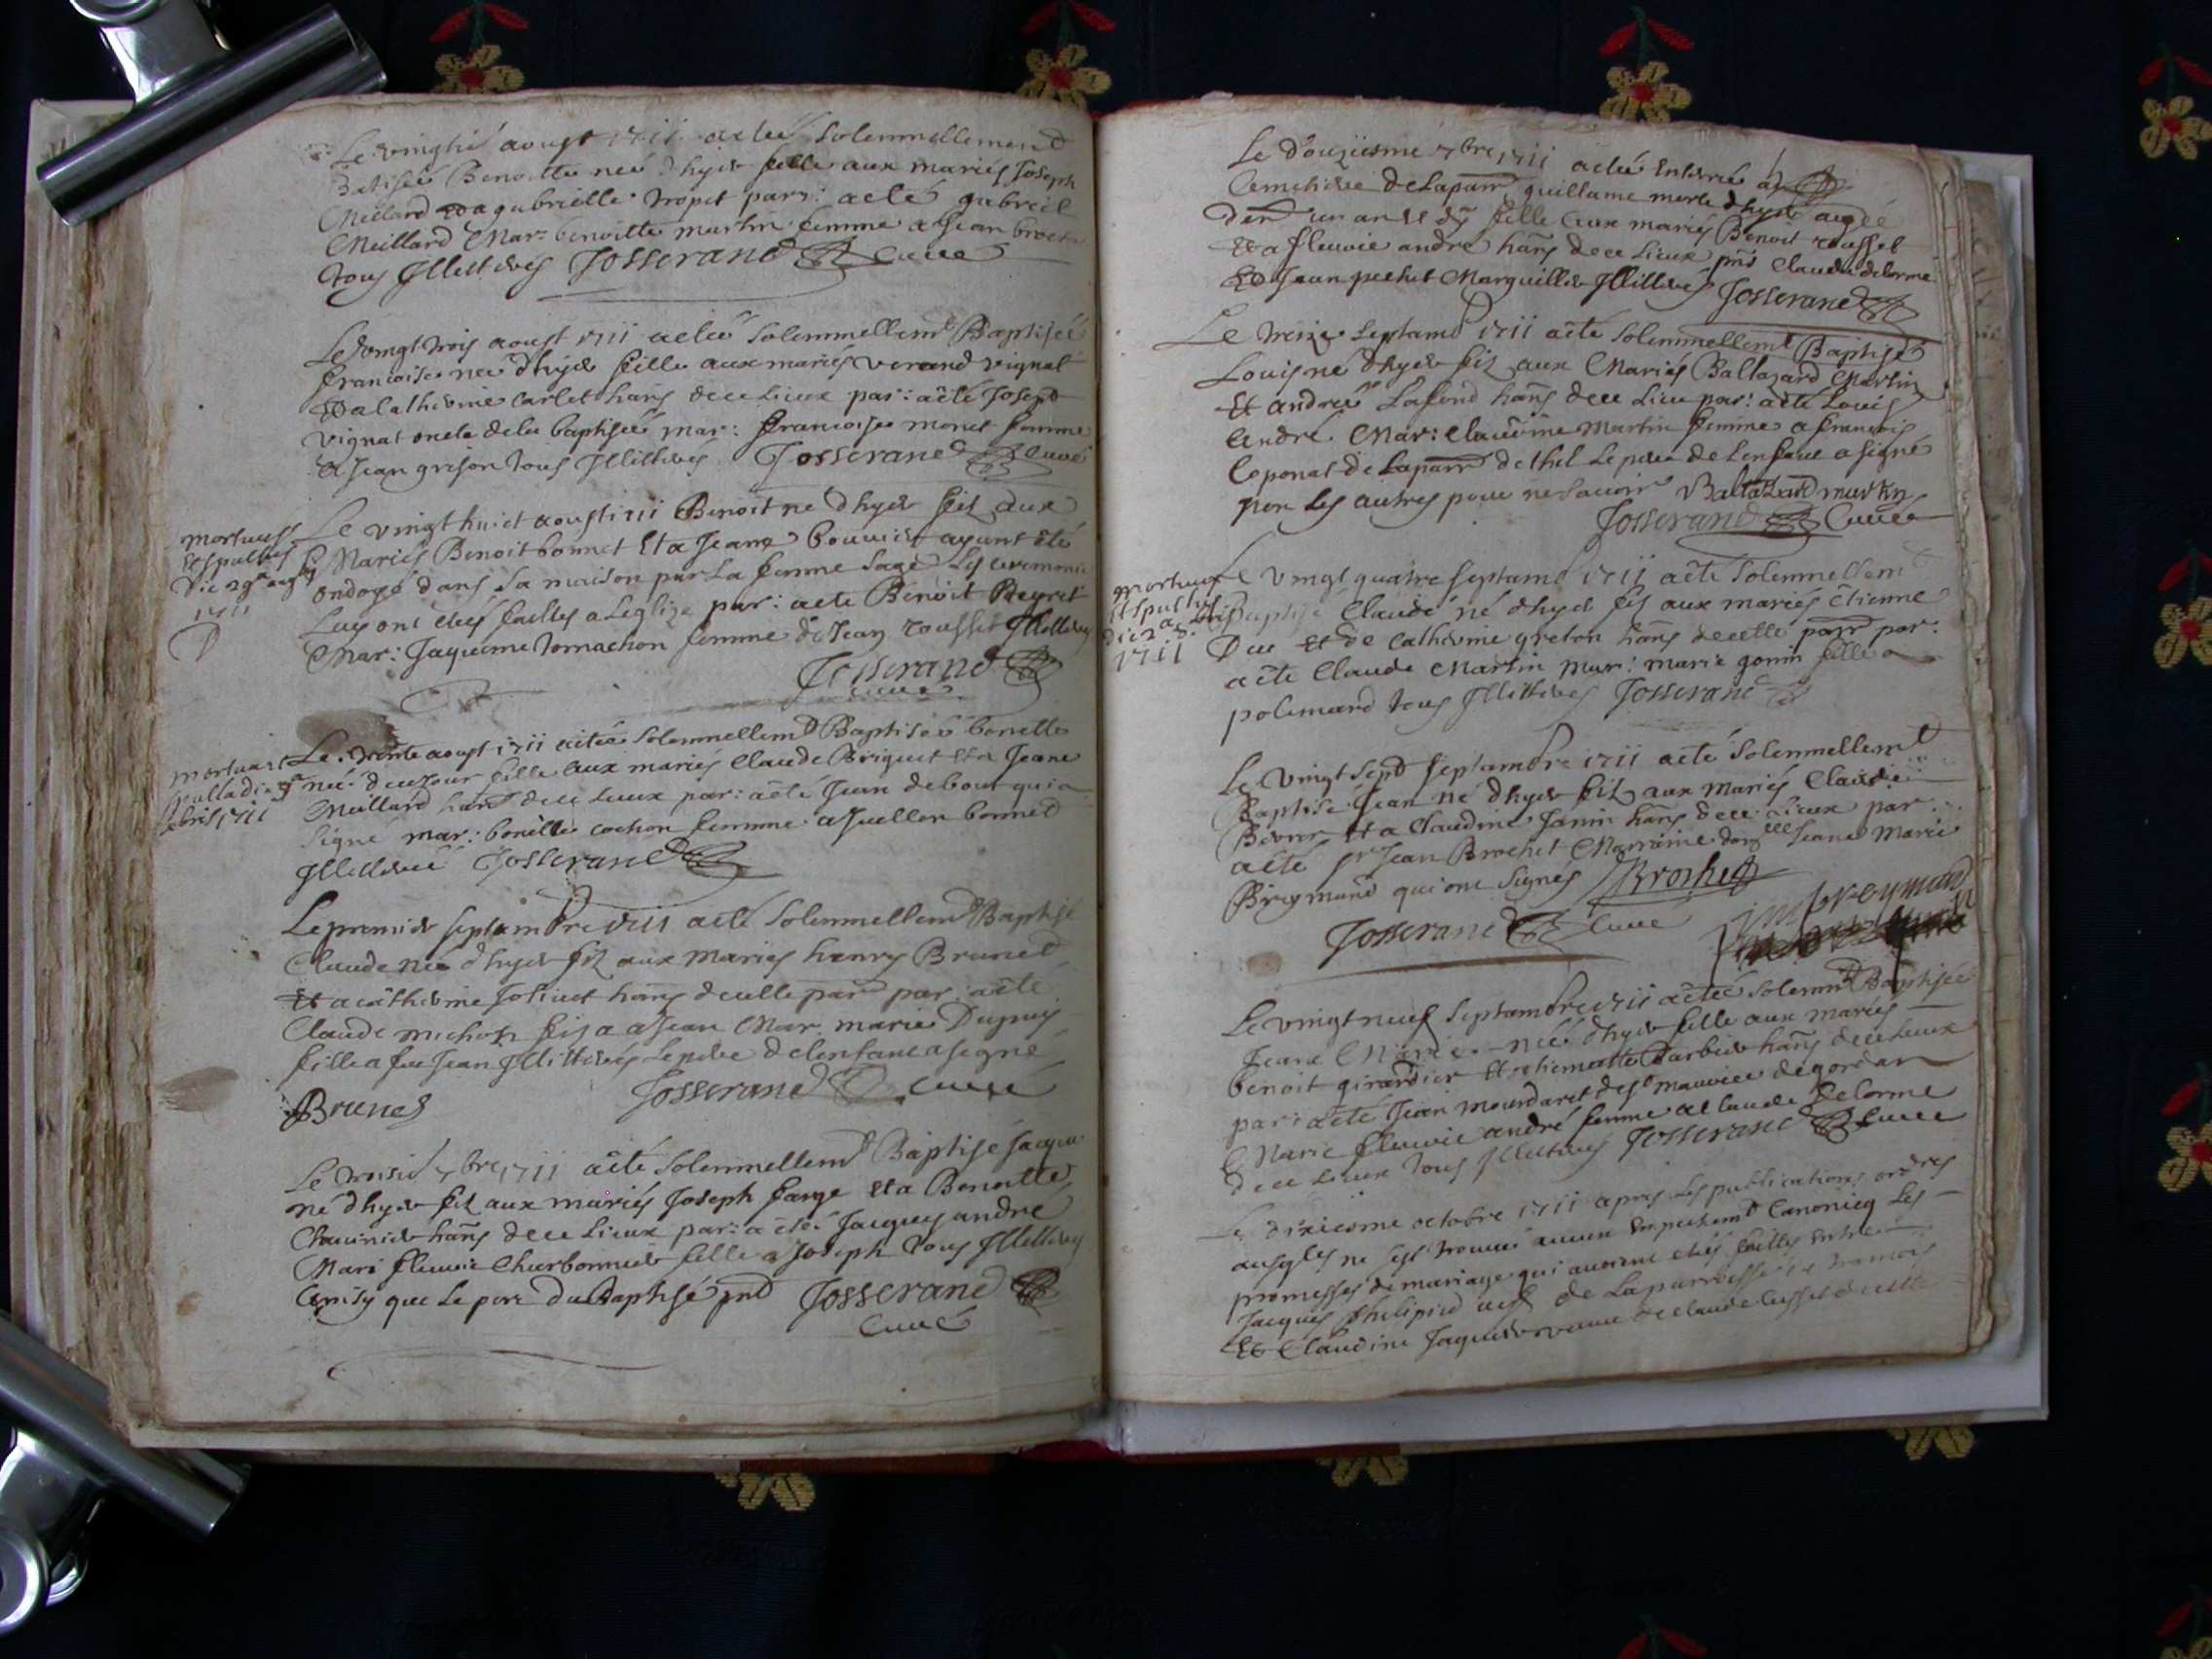 Le vingtié aoust 1711 a eté Solemnellement
Batiseé Benoitte neé d'hyer fille aux mariés Joseph
Meilard et a gabrielle tropet parr: a eté gabreil
Meillard Mar: benoitte martin femme a Jean
tous Illitterés Josserand Curé
Le vingt trois aoust 1711 a eté Solemnellemt Baptiseé
francoise neé d'hyer fille aux mariés verand vignat
Et a Catherine Carlet hans de ce Lieux par: a eté Joseph
vignat oncle de la baptiseé mar: francoise monet femme
a Jean grison tous Illitterés Josserand Curé
mortuus
Et sepultus
die 29a augti
1711
Le vingt huict aoust 1711 Benoit né d'hyer fils aux
Mariés Benoit bonnet Et a Jeane bouvier ayant eté
ondoyé dans Sa maison par La femme Sage Les ceremonies
Luy ont etés faittes a Leglize par: a eté Benoit Peyret
Mar: Jaqueme tomachon femme de Jean rousset Illitterés
Josserand
Curé
mortua et
sepulta die
1711
Le trente aoust 1711 a eteé Solemnellemt Baptiseé bonette
neé de ce Jour fille aux mariés Claude Briguet Et a Jeane
Meillard hans de ce Lieux par: a eté Jean debout qui a
Signé mar: bonette cochon femme a bonnet
Illitereé Josserand
Le premier Septambre 1711 a eté Solemnellemt Baptisé
Claude né d'hyer fils aux mariés henry Brunet
Et a Catherine Jolivet hans de cette parr par: a eté
Claude michon fils a Jean Mar: marie Dupuy
fille a feu Jean Illitterés Le pere de lenfant a signé
Brunet Josserand Curé
Le troisié 7bre 1711 a eté Solemnellemt Baptisé Jacque
né d'hyer fils aux mariés Joseph farge Et a Benoitte
hans de ce Lieux par: a eté Jacques andré
Mari fleurie Charbonnier fille a Joseph tous Illitterés
ainsy que Le pere du Baptisé pnt Josserand
Curé
Le douziesme 7bre 1711 a eteé Enterreé au
Cemetiere de La parr guillame morte d'hyer ageé
denv un an Et dy fille aux mariés Benoit rousset
Et a fleurie andré hans de ce Lieux pnts Claude delorme
Et Jean pechet Marguillier Illitterés Josserand
Le treize Septamb 1711 a eté Solemnellemt Baptisé
Louis né d'hyer fils aux Mariés Baltazard Martin
Et andreé Lafond hans de ce Lieu par: a eté Louis
André Mar: Claudine Martin femme a francois
Coponat de La parr de thel Le pere de Lenfant a signé
non Les autres pour ne Savoir Baltazard martin
Josserand Curé
mortuus
Et sepultus
1711
Le Vingt quatre Septamb 1711 a eté Solemnellemt
Baptisé Claude né d'hyer fils aux mariés Etienne
Duc Et de Catherine greton hans de cette parr par:
a eté Claude Martin mar: marie gonin fille a
polemard tous Illitterés Josserand
Le Vingt Sept Septambre 1711 a eté Solemnellemt
Baptisé Jean né d'hyer fils aux mariés Claude
Et a Claudine Janin hans de ce Lieux par:
a eté Sr Jean Brochet Marraine damelle Jeane Marie
Breymand qui ont Signés Brochet
jm breymand
Josserand Curé
Le vingt neuf Septambre 1711 a eteé Solemnt Baptiseé
Jeane Marie neé d'hyer fille aux mariés
benoit girardier Et etiennette Barbier hans de ce Lieux
par: a eté Jean mourdaret de St mauvice de gordan
Marie fleurie andré femme a Claude Delorme
de ce Lieux tous Illitterés Josserand Curé
Le dixiesme octobre 1711 apres Les publications ordres
ausqles ne sest trouvé aucun Empechemt Canonicq Les
promesses de mariage qui avoient etés faittes Entre
Jacques Philipied de La parroisse de tramois
Et Claudine Jaquier veuve de Claude Cusset de cette